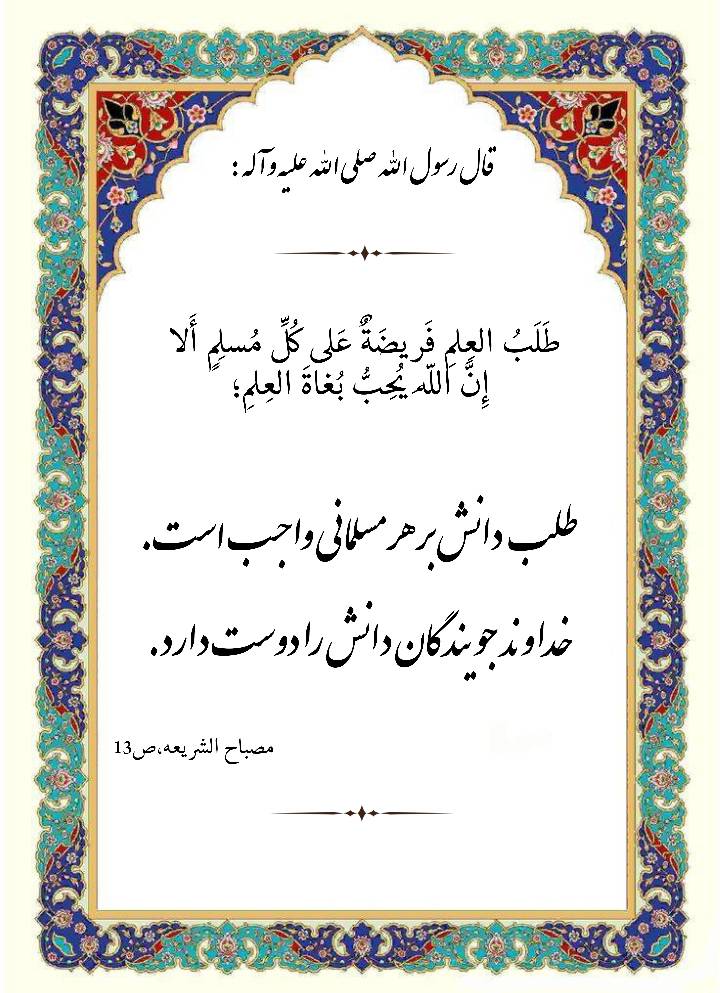 قال رسول الله صلی الله علیه وآله :
طَلَبُ العِلمِ فَريضَةٌ عَلى كُلِّ مُسلِمٍ أَلا
إِنَّ اللّه يُحِبُّ بُغاةَ العِلمِ؛
طلب دانش بر هر مسلمانی واجب است.
خداوند جویندگان دانش را دوست دارد.
مصباح الشریعه،ص13